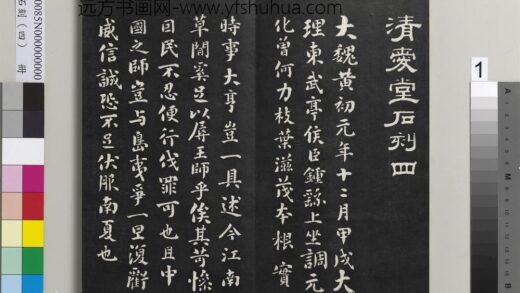 远方书画网 www.yfshuhua.com
清愛堂石刻四
大魏黄初元年十二月甲戌大
理東武亭侯臣鍾繇上坐調元
化曽何力枝葉滋茂本根實
時事大亨豈一具述今江南
草間奚足以屏王師乎俟其苛慘
民不忍便行伐罪可也且中
國之師豈与島夷爭一旦復虧
威信誠恐不足伏服南夏也
1